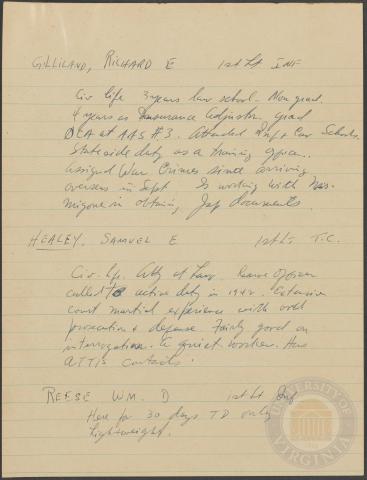 GILLILAND, RICHARD E 1st Lt INF
Civ life 3 years law school. Non grad.
4 years as Insurance Adjustor. grad
OCA at AAS #3. Attended Inf + Cav Schools.
Stateside duty as a training officer.
Assigned War Crimes since arriving
overseas in Sept. Is working with
in obtaining Jap documents.
HEALEY, SAMUEL E. 1st Lt. T.C.
Civ. life. Atty at Law. Reserve Officer
called to active duty in 1942. Extensive
court martial experience with both
prosecution & defense. Fairly good on
interrogation. A quiet worker. Has
ATIS contacts.
REESE WM. D 1st Lt Inf
Here for 30 days TD only
Lightweight.
UNIVERSITY OF VIRGINIA